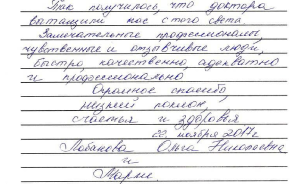 Так получилось, что доктора
вытащили нас с того света.
Замечательные профессионалы,
чувственные и отзывчивые люди,
быстро, качественно, адекватно
и профессионально
Огромное спасибо
низкий поклон,
счастья и здоровья
22 ноября 2017г
Лобанова Ольга Николаевна
и